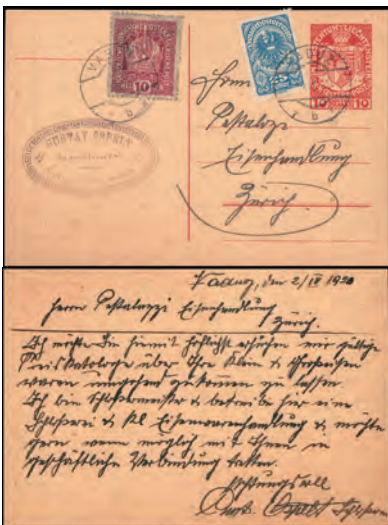 VADUZ
10
25
VADUZ
b
b
FÜRSTENTUM LIECHTENSTEIN
10 10
Herrn
Pestalozzi
Eisenhandlung
Zürich.
GUSTAV OSPELT
Vaduz, den 2/IV 1920
Herrn Pestalozzi Eisenhandlung
Zürich.
Ich möchte Sie hiermit höflichst ersuchen mir gültige
Preiskataloge über Ihre Klein & Grobeisen
waren umgehend zukommen zu lassen.
Ich bin Schlossermeister & betreibe hier eine
Schlosserei & kl Eisenwarenhandlung & möchte
gern wenn möglich mit Ihnen in
geschäftliche Verbindung treten.
Achtungsvoll
Gust. Ospelt Schlosser